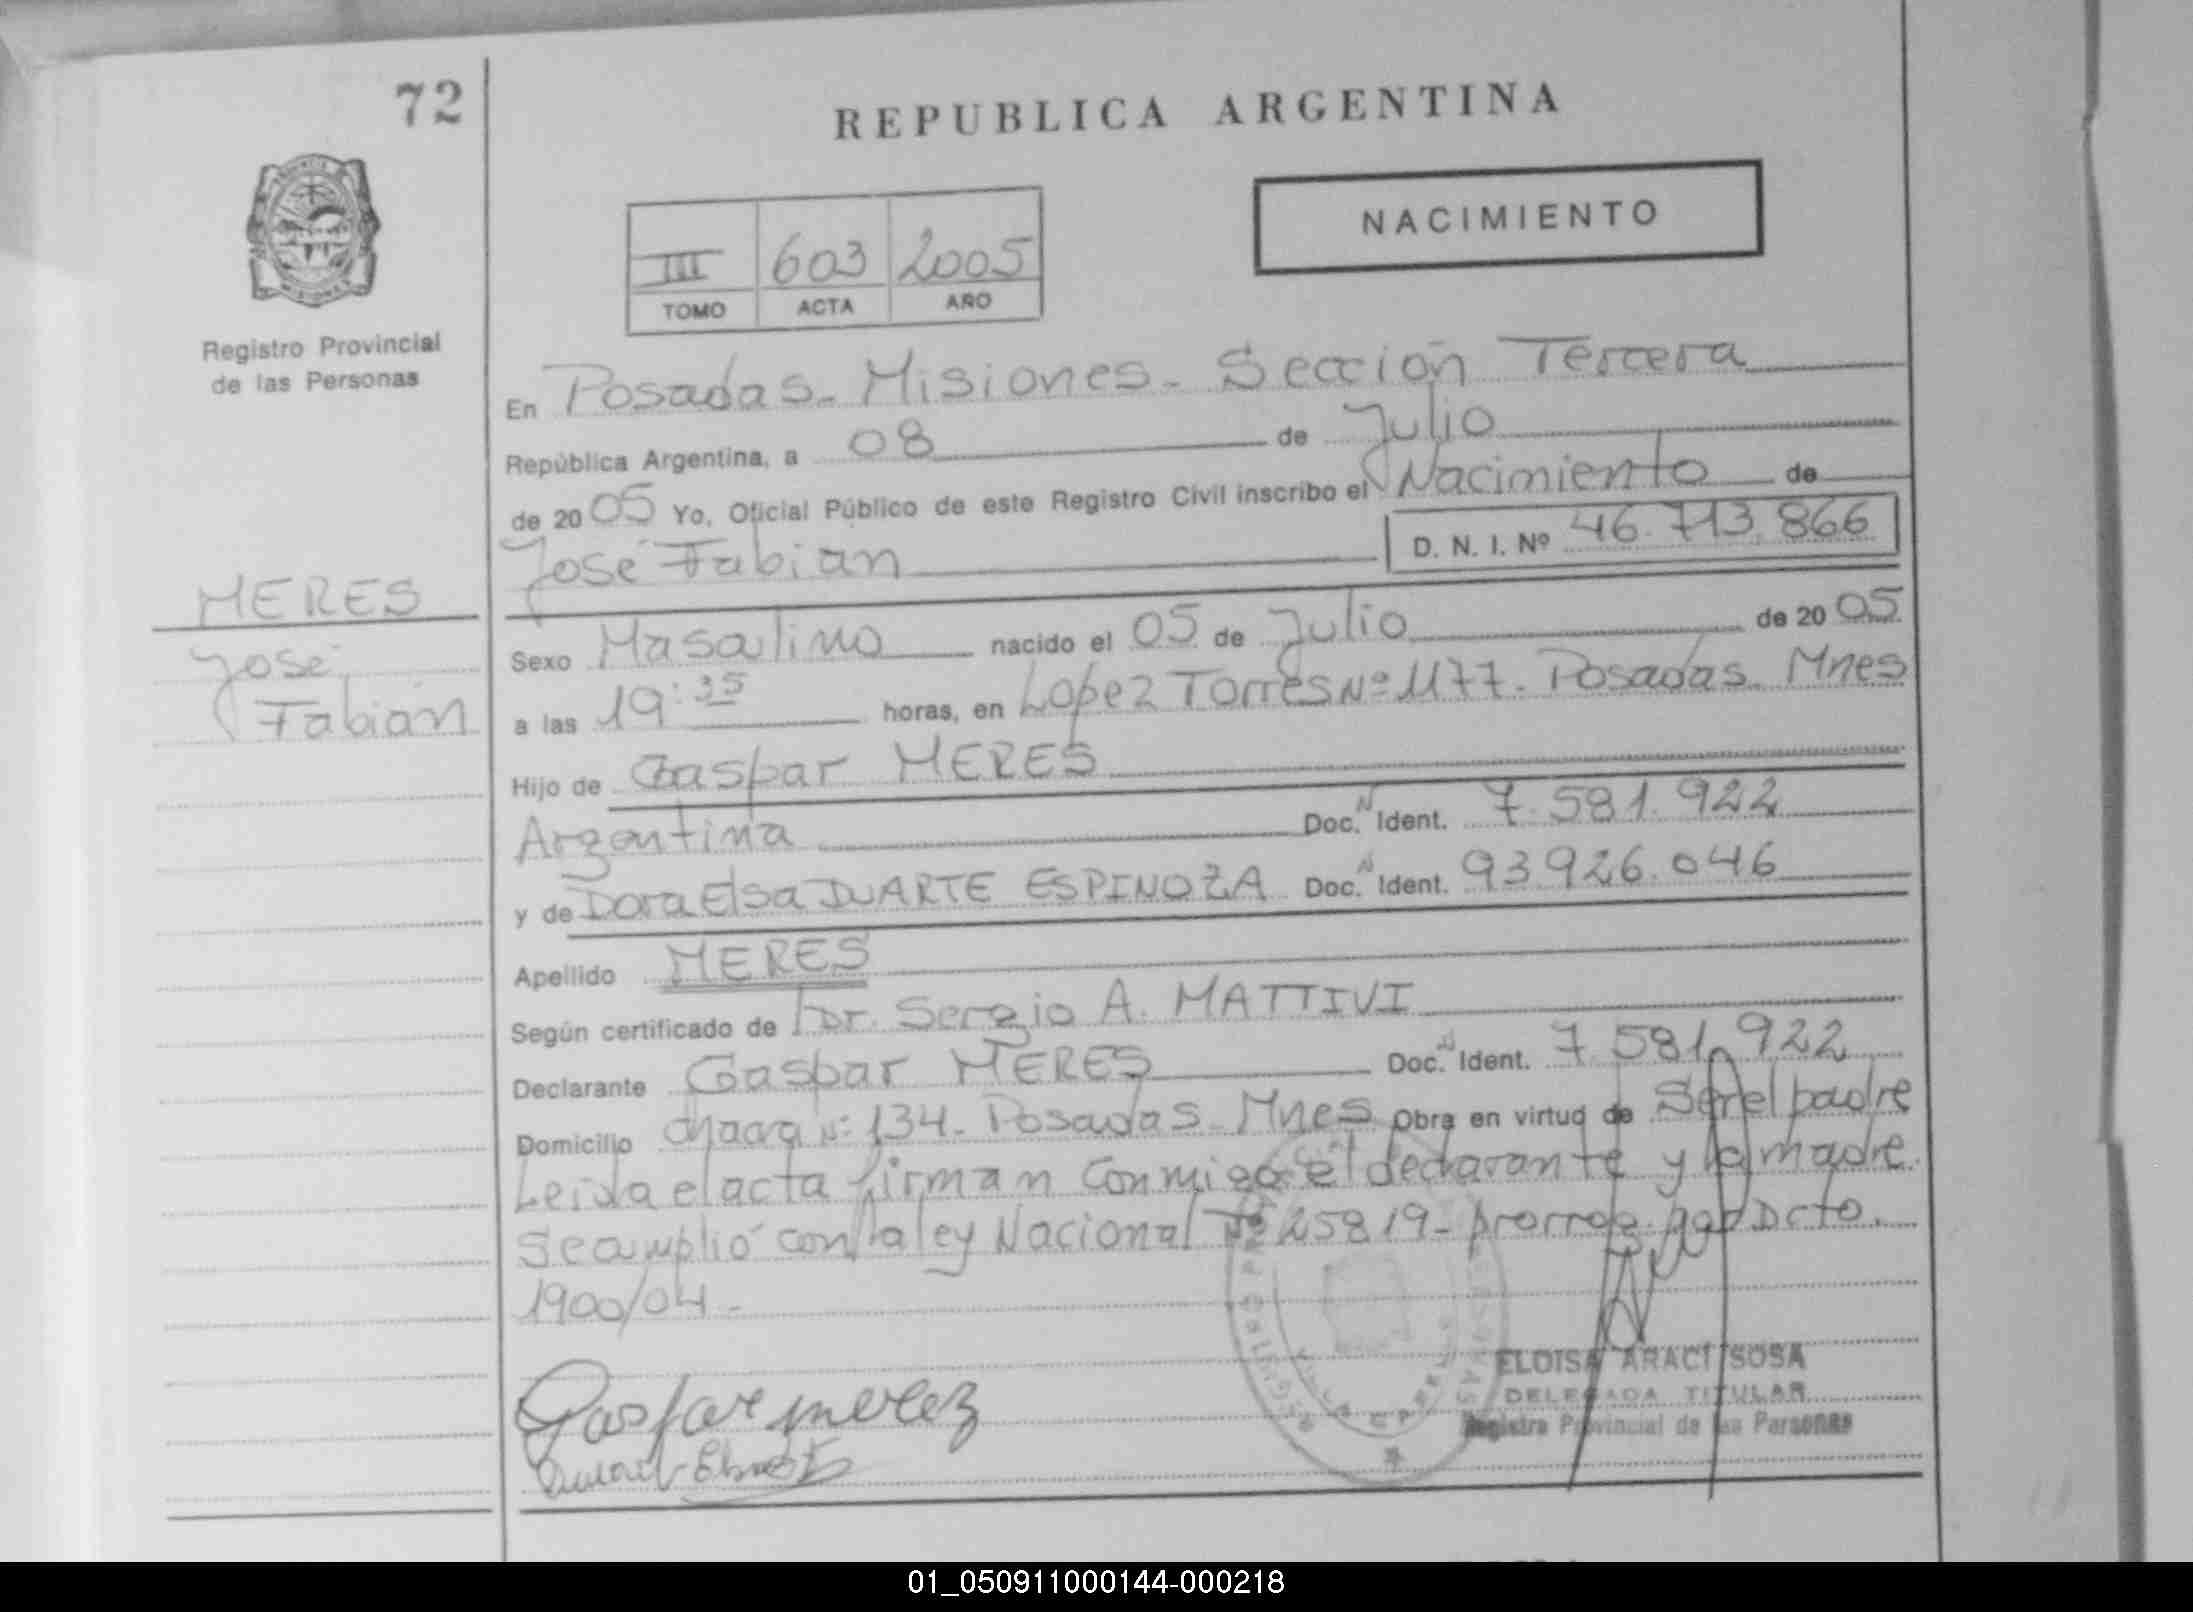 72
REPUBLICA ARGENTINA
NACIMIENTO
III 603 2005
TOMO ACTA AÑO
Registro Provincial
de las Personas
En Posadas - Misiones - Sección Tercera
República Argentina, a 08 de Julio
de 2005 Yo, Oficial Público de este Registro Civil inscribo el Nacimiento de
José Fabian D. N. I. Nº 46.713.866
MERES
José
Fabián
Sexo Masculino nacido el 05 de Julio de 2005
a las 19:35 horas, en Lopez Torres Nº 1177 - Posadas - Mnes
Hijo de Gaspar MERES
Argentina Doc. N Ident. 7.581.922
y de Dora Elsa DUARTE ESPINOZA Doc. N Ident. 93926.046
Apellido MERES
Según certificado de Dr. Sergio A. MATTIVI
Declarante Gaspar MERES Doc. N Ident. 7.581.922
Domicilio Chacra Nº 134 - Posadas - Mnes Obra en virtud de Ser el padre
Leida el acta firman conmigo el declarante y la madre.
Se amplió con la ley Nacional Nº 25819 - prorrog. por Dcto.
1900/04 -
Gaspar merez
ELOISA ARACI SOSA
DELEGADA TITULAR
Registro Provincial de las Personas
01_050911000144-000218